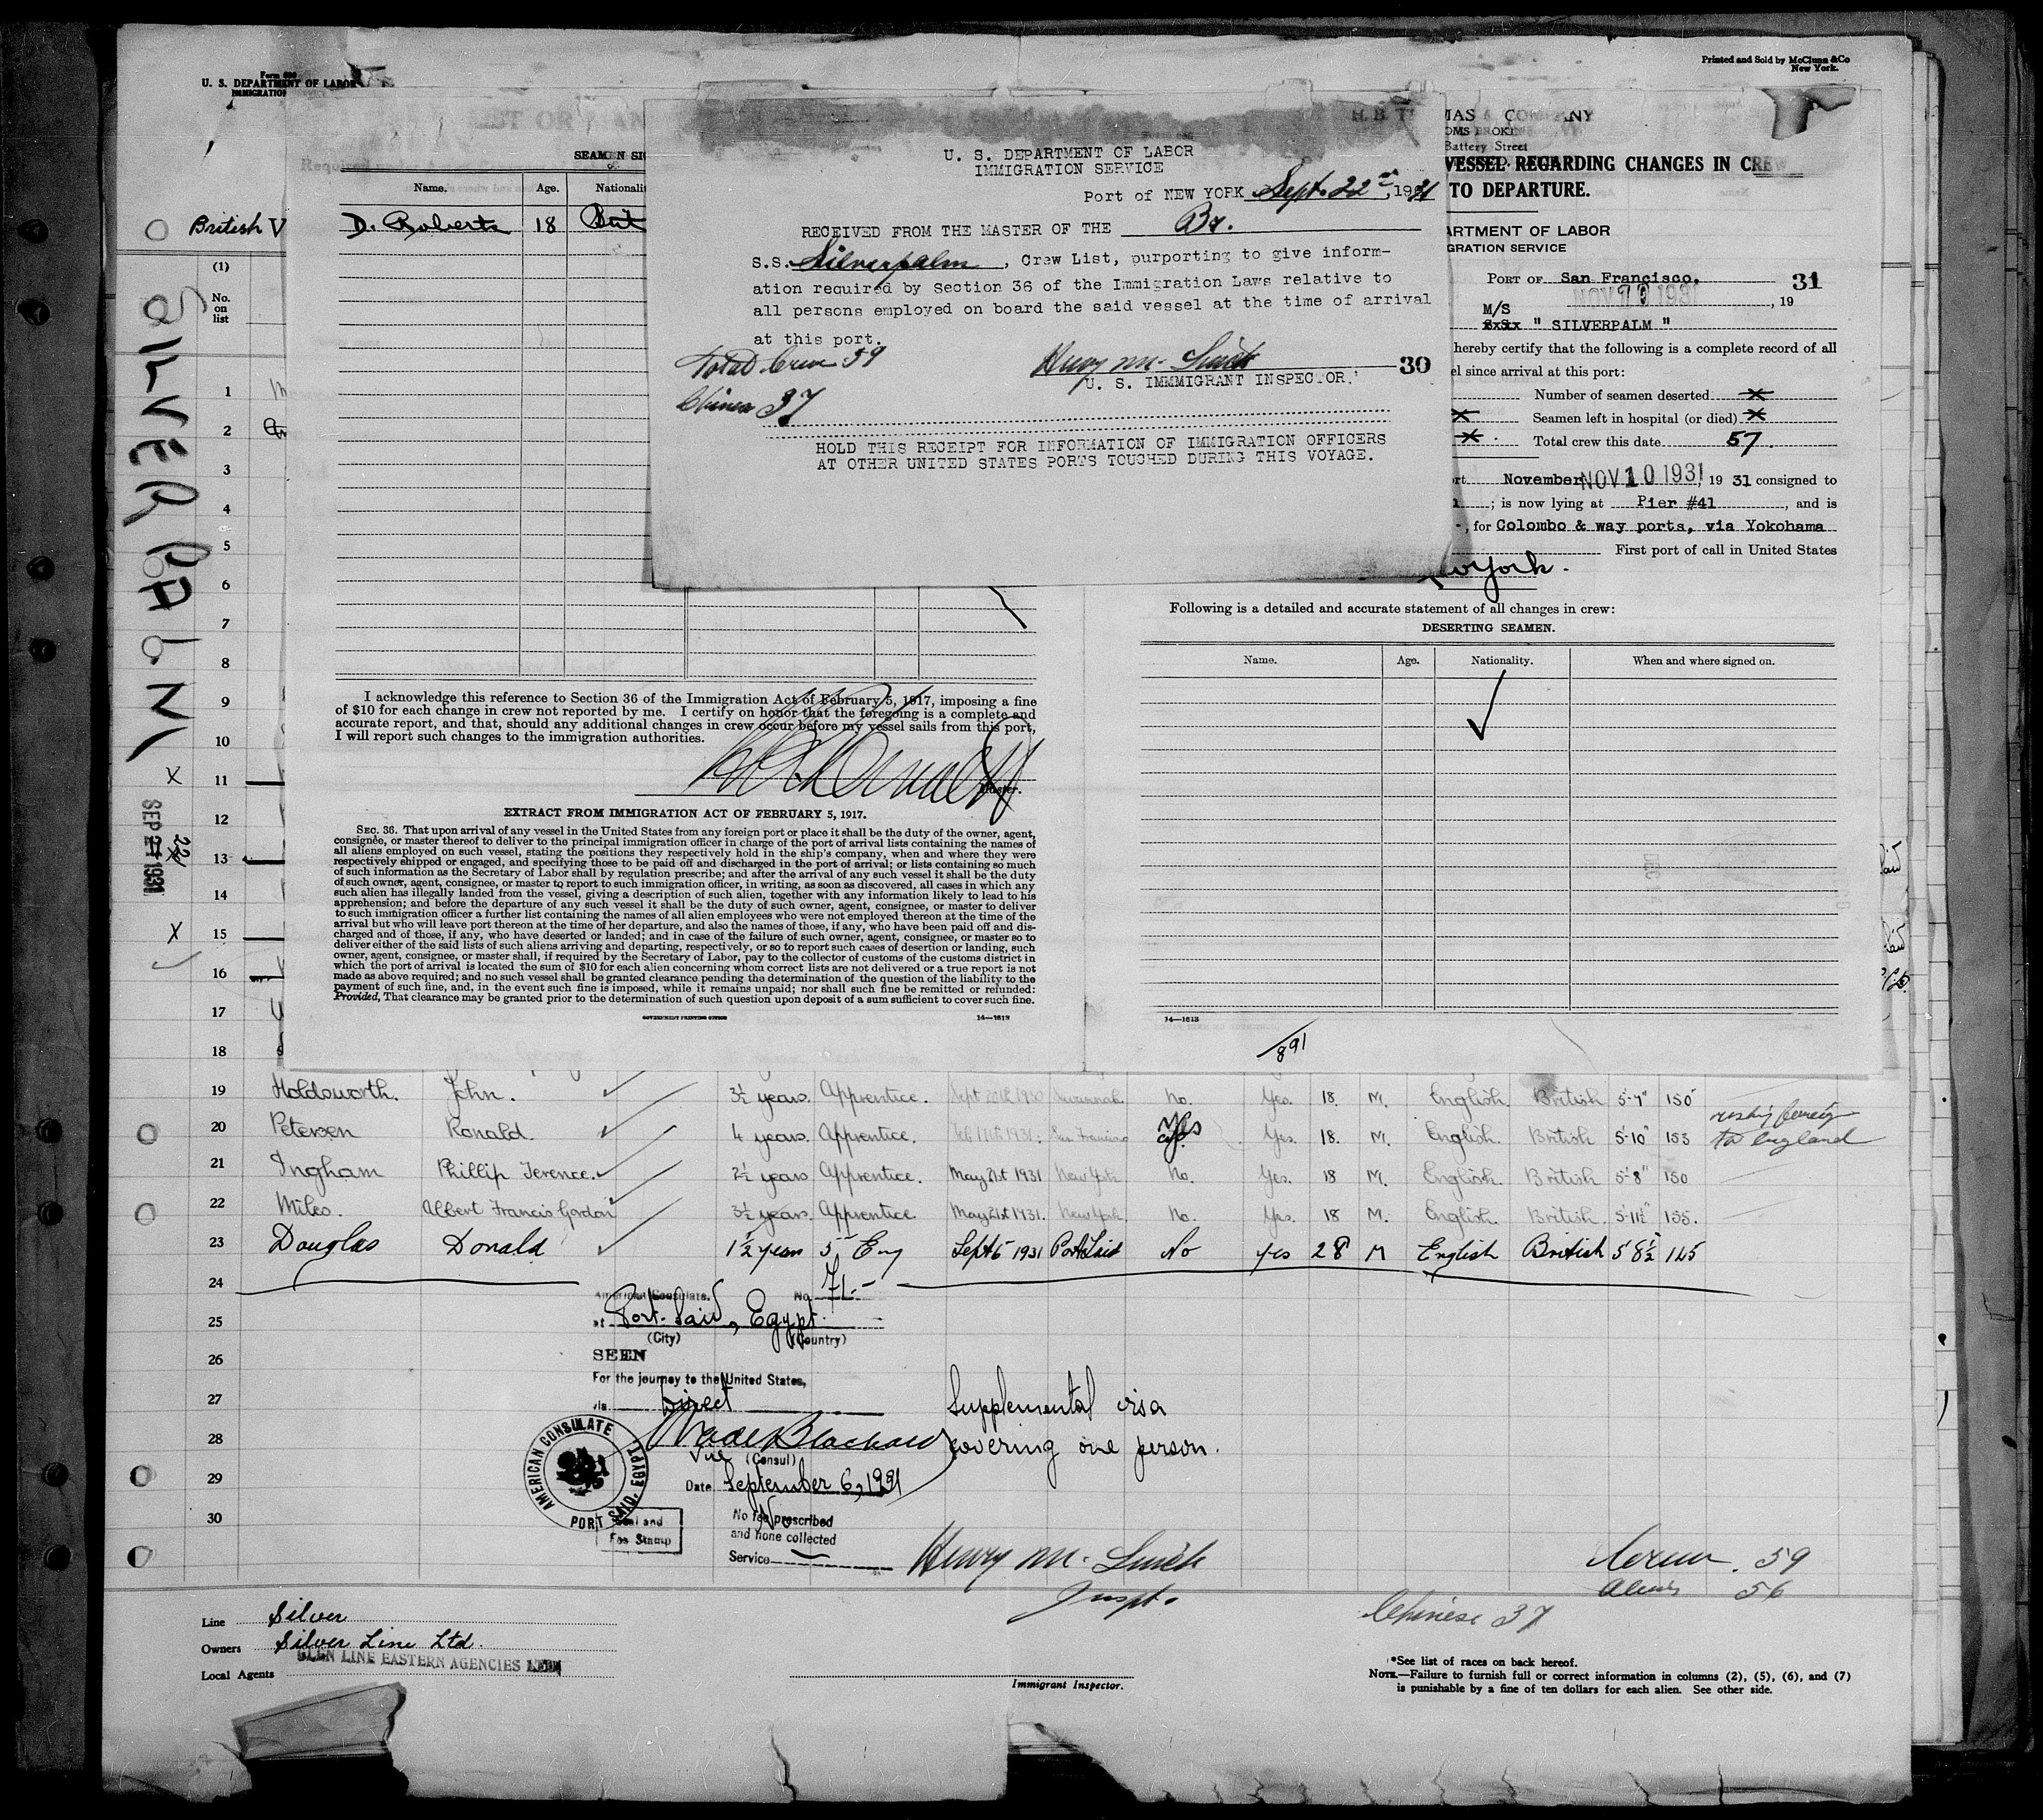 Form 680
U. S. DEPARTMENT OF LABOR
IMMIGRATION
Printed and Sold by McClunn &Co
New York.
British
(1)
No.
on
list
SILVERPALM
SEP 21 1931
22
1
2
3
4
5
6
7
8
9
10
X 11
12
X 13
14
X 15
16
17
18
SEAMEN SI
Name. Age. Nationali
D. Roberts 18 Brit
I acknowledge this reference to Section 36 of the Immigration Act of February 5, 1917, imposing a fine
of $10 for each change in crew not reported by me. I certify on honor that the foregoing is a complete and
accurate report, and that, should any additional changes in crew occur before my vessel sails from this port,
I will report such changes to the immigration authorities.
Master.
EXTRACT FROM IMMIGRATION ACT OF FEBRUARY 5, 1917.
SEC. 36. That upon arrival of any vessel in the United States from any foreign port or place it shall be the duty of the owner, agent,
consignee, or master thereof to deliver to the principal immigration officer in charge of the port of arrival lists containing the names of
all aliens employed on such vessel, stating the positions they respectively hold in the ship's company, when and where they were
respectively shipped or engaged, and specifying those to be paid off and discharged in the port of arrival; or lists containing so much
of such information as the Secretary of Labor shall by regulation prescribe; and after the arrival of any such vessel it shall be the duty
of such owner, agent, consignee, or master to report to such immigration officer, in writing, as soon as discovered, all cases in which any
such alien has illegally landed from the vessel, giving a description of such alien, together with any information likely to lead to his
apprehension; and before the departure of any such vessel it shall be the duty of such owner, agent, consignee, or master to deliver
to such immigration officer a further list containing the names of all alien employees who were not employed thereon at the time of the
arrival but who will leave port thereon at the time of her departure, and also the names of those, if any, who have been paid off and dis-
charged and of those, if any, who have deserted or landed; and in case of the failure of such owner, agent, consignee, or master so to
deliver either of the said lists of such aliens arriving and departing, respectively, or so to report such cases of desertion or landing, such
owner, agent, consignee, or master shall, if required by the Secretary of Labor, pay to the collector of customs of the customs district in
which the port of arrival is located the sum of $10 for each alien concerning whom correct lists are not delivered or a true report is not
made as above required; and no such vessel shall be granted clearance pending the determination of the question of the liability to the
payment of such fine, and, in the event such fine is imposed, while it remains unpaid; nor shall such fine be remitted or refunded:
Provided, That clearance may be granted prior to the determination of such question upon deposit of a sum sufficient to cover such fine.
GOVERNMENT PRINTING OFFICE 14—1613
U. S. DEPARTMENT OF LABOR
IMMIGRATION SERVICE
Port of NEW YORK Sept. 22nd, 1931
RECEIVED FROM THE MASTER OF THE Br.
S.S. Silverpalm, Crew List, purporting to give inform-
ation required by Section 36 of the Immigration Laws relative to
all persons employed on board the said vessel at the time of arrival
at this port.
Total Crew 59
Chinese 37
Henry M. Smith 30
U. S. IMMMIGRANT INSPECTOR.
HOLD THIS RECEIPT FOR INFORMATION OF IMMIGRATION OFFICERS
AT OTHER UNITED STATES PORTS TOUCHED DURING THIS VOYAGE.
MAS & COMPANY
OMS BROKE
Battery Street
VESSEL REGARDING CHANGES IN CREW
TO DEPARTURE.
ARTMENT OF LABOR
GRATION SERVICE
PORT OF San Francisco, 31
NOV 10 1931, 19
M/S
S.S. " SILVERPALM "
hereby certify that the following is a complete record of all
el since arrival at this port:
Number of seamen deserted x
x Seamen left in hospital (or died) x
x Total crew this date 57.
ort November NOV 10 1931, 19 31 consigned to
; is now lying at Pier #41, and is
, for Colombo & way ports, via Yokohama
First port of call in United States
York.
Following is a detailed and accurate statement of all changes in crew:
DESERTING SEAMEN.
Name. Age. Nationality. When and where signed on.
14—1613
891
19 Holdsworth. John. 3½ years. Apprentice. Sept 20th 1930 Savannah. No. Yes. 18. M. English. British 5-7" 150
20 Petersen Ronald. 4 years. Apprentice. Feb 17th 1931. San Francisco Yes Yes. 18. M. English. British 5-10" 153
to England
21 Ingham Phillip Terence. 2½ years Apprentice. May 21st 1931 New York No. Yes. 18 M. English. British 5-8" 150
22 Miles. Albert Francis Gordon 3½ years. Apprentice May 21st 1931. New York. No. Yes. 18 M. English. British. 5-11½" 155.
23 Douglas Donald 1½ year 5 Eng Sept 5 1931 Port Said No yes 28 M English British 5 8½ 145
24
25
26
27
28
29
30
American Consulate. No. 71.-
at Port Said, Egypt.
(City) (Country)
SEEN
For the journey to the United States,
via Direct
Supplemental visa
covering one person.
Vice (Consul)
Date September 6, 1931
AMERICAN CONSULATE
PORT SAID, EGYPT
Seal and
Fee Stamp
No fee prescribed
and none collected
Service
Henry M. Smith
Inspt.
Crew. 59
Aliens 56
Chinese 37
Line Silver
Owners Silver Line Ltd.
GLEN LINE EASTERN AGENCIES LTD
Local Agents
Immigrant Inspector.
*See list of races on back hereof.
NOTE.—Failure to furnish full or correct information in columns (2), (5), (6), and (7)
is punishable by a fine of ten dollars for each alien. See other side.